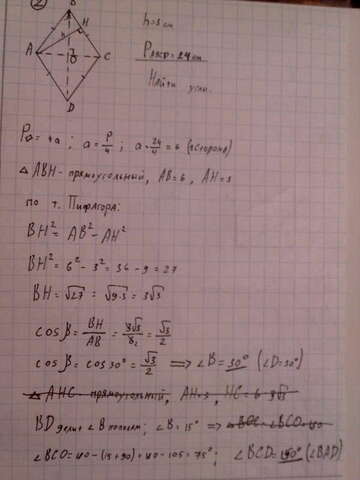 ②
B
H
h
A
C
D
h=3 см
Pавср=24 см
Найти углы.
P◇=4a ; a=P/4 ; a=24/4=6 (сторона)
△ABH-прямоугольный, AB=6, AH=3
по т. Пифагора:
BH²=AB²-AH²
BH²=6²-3²=36-9=27
BH=√27=√9·3=3√3
cosβ=BH/AB=3√3/6₂=√3/2
cosβ=cos30°=√3/2 ⟹ ∠B=30° (∠D=30°)
△AHC-прямоугольный, AH=3, HC=6-3√3
BD делит ∠B пополам; ∠B=15° ⟹ ∠BOC=∠BCO=180
∠BCO=180-(15+90)=180-105=75°; ∠BCD=150° (∠BAD)